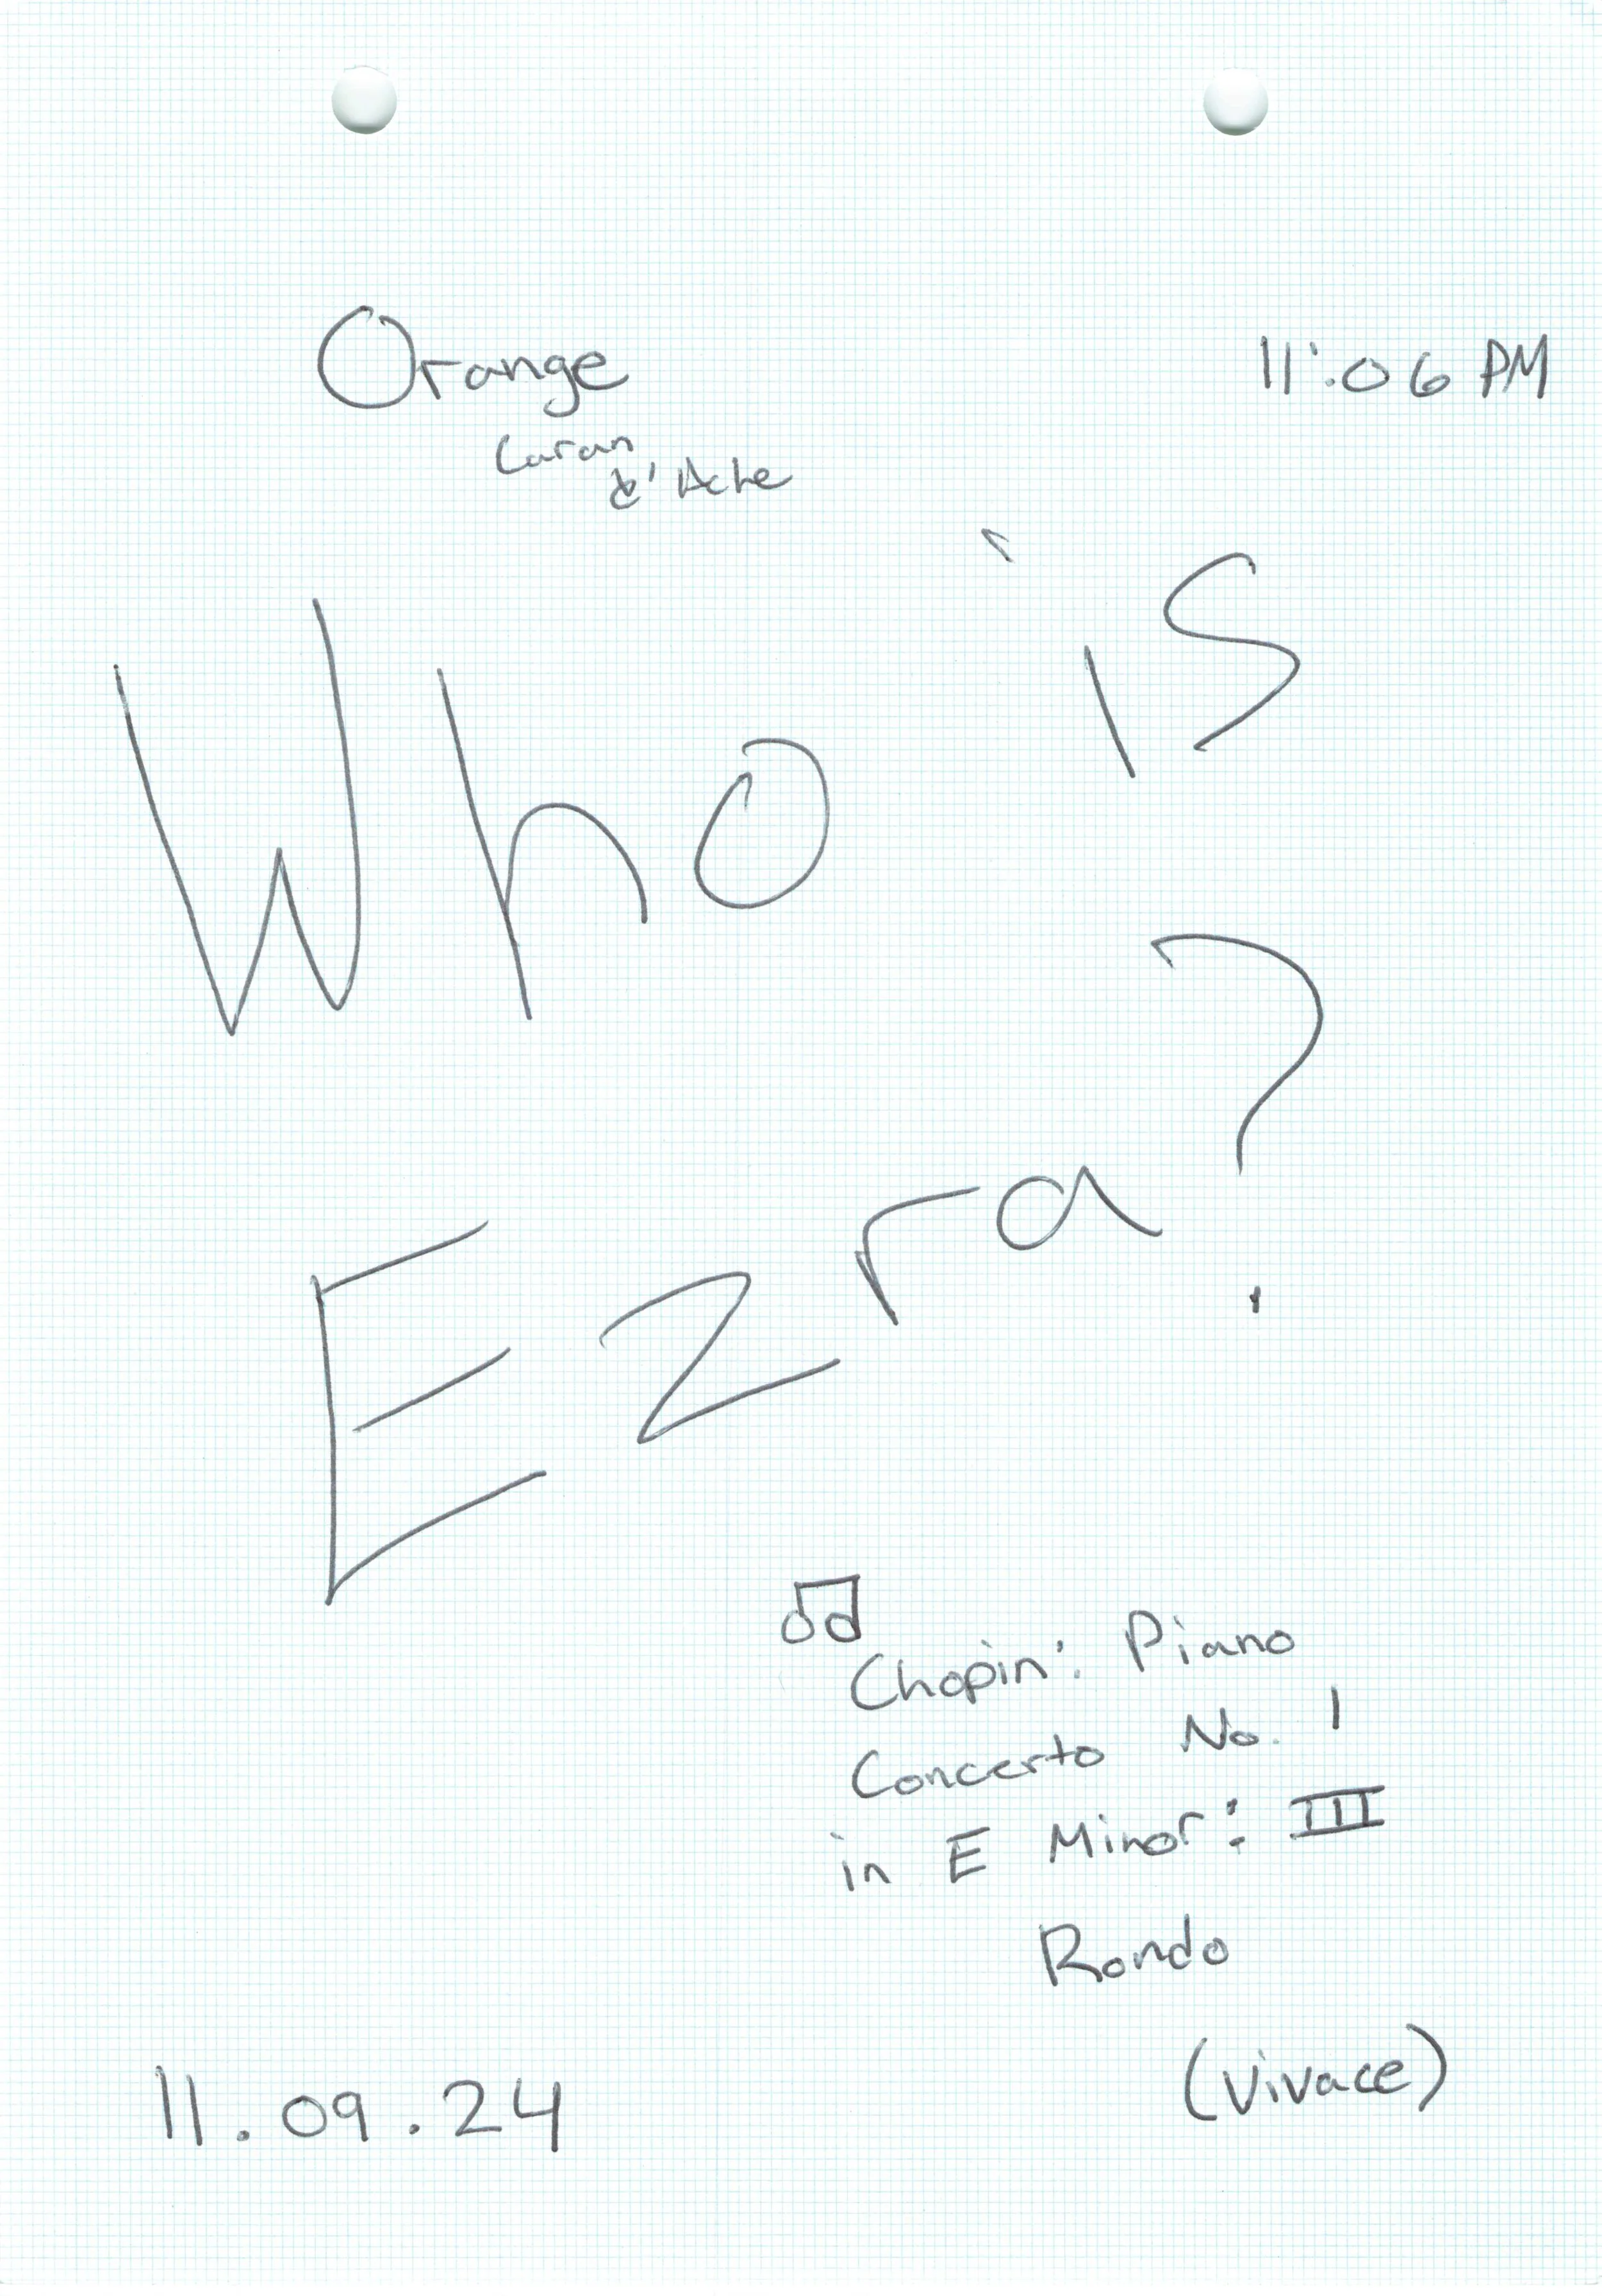 Orange
11:06 PM
Caran
d'Ache
Who is
Ezra?
Chopin: Piano
Concerto No. 1
in E Minor: III
Rondo
(Vivace)
11.09.24